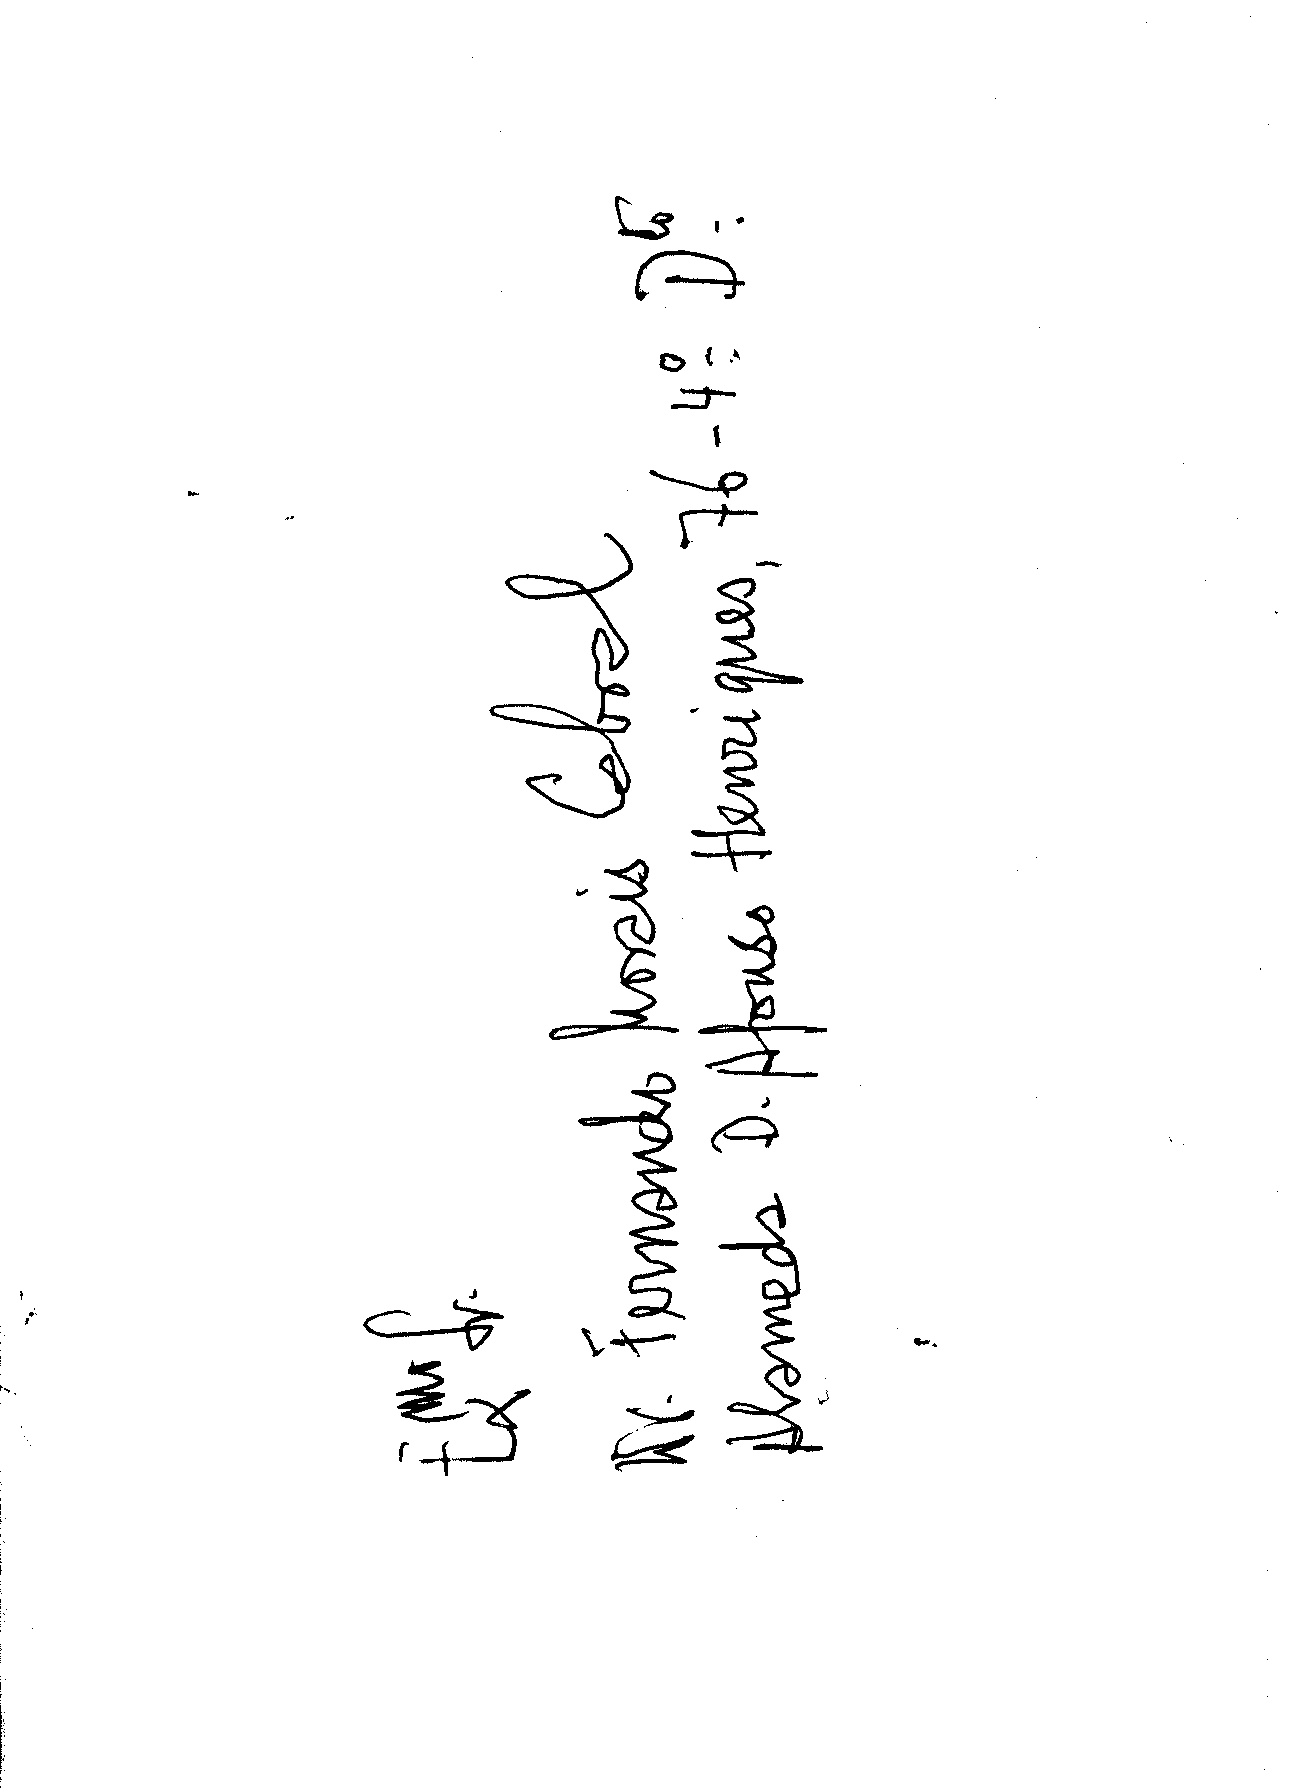 Exmº Sr.
Dr. Fernando Morais Cabral
Alameda D. Afonso Henriques, 76-4º Dto.